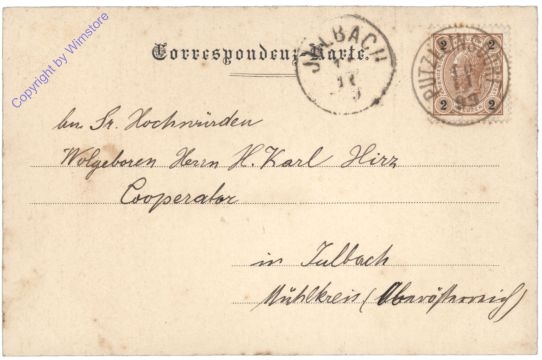 Copyright by Wimstore
Correspondenz-Karte.
JULBACH
17
9
PUTZLEINSDORF
2 2
2 2
An Sr. Hochwürden
Wolgeboren Herrn H. Karl Hirz
Cooperator
in Julbach
Mühlkreis (Oberösterreich)